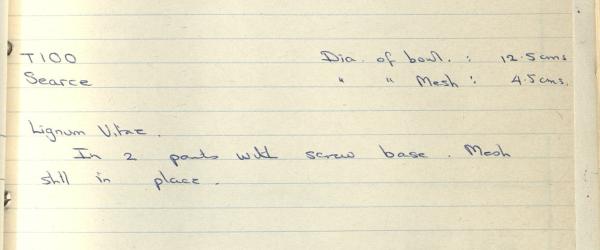 T100 Dia. of bowl. : 12.5cms
Searce " " Mesh : 4.5cms.
Lignum Vitae.
In 2 parts with screw base. Mesh
still in place.